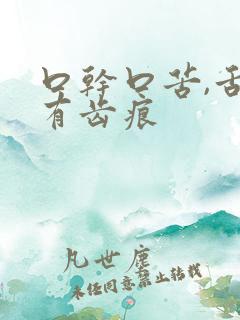 口幹口苦,舌
有齿痕
凡世塵
未经同意禁止转载